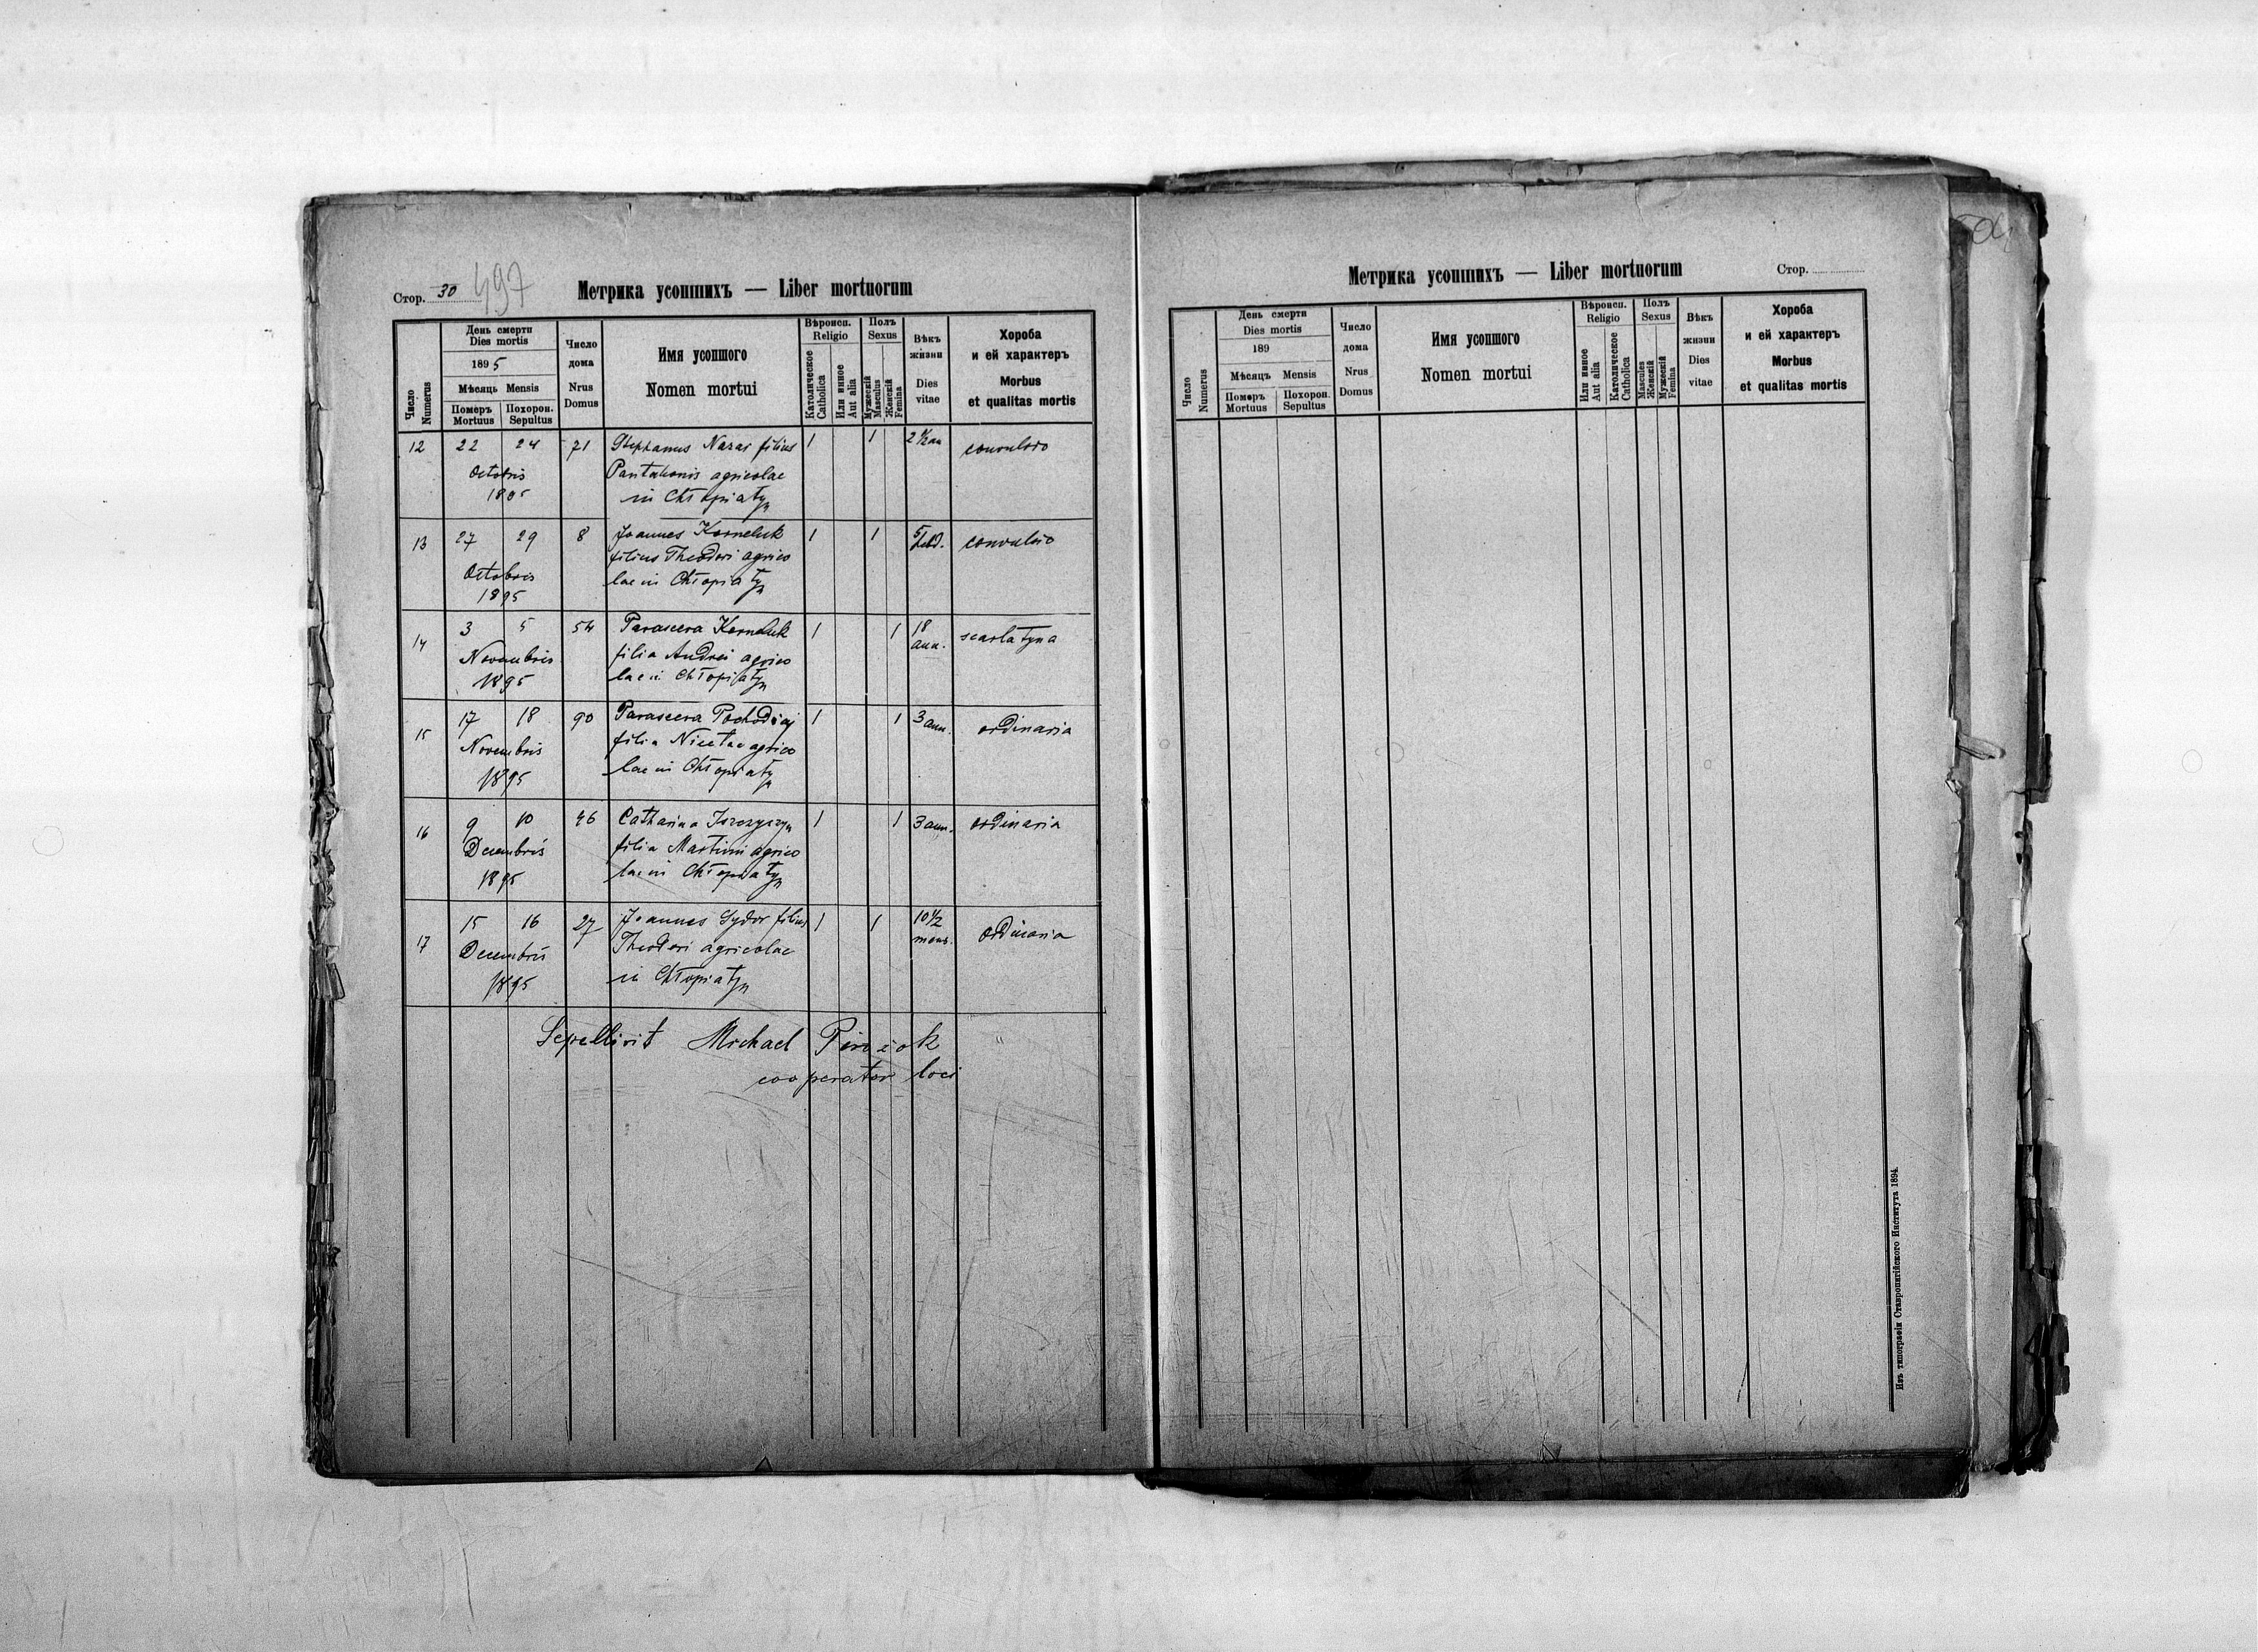 Стор. 30 497
Метрика усопшихъ — Liber mortuorum
Число Numerus
День смерти
Dies mortis
1895
Мѣсяць Mensis
Померъ Mortuus
Похорон. Sepultus
Число дома
Nrus Domus
Имя усопшого
Nomen mortui
Вѣроисп.
Religio
Католическое Catholica
Или иное Aut alia
Полъ
Sexus
Мужескій Masculus
Женскій Femina
Вѣкъ жизни
Dies vitae
Хороба
и ей характеръ
Morbus
et qualitas mortis
12 22 24 71 Stephanus Nazar filius 1 1 2 1/2 an convulsio
Octobris Pantaleonis agricolae
1895 in Chłopiatyn
13 27 29 8 Joannes Korneluk 1 1 5 hebd. convulsio
filius Theodori agrico
Octobris lae in Chłopiatyn
1895
14 3 5 54 Parascera Korneluk 1 1 18 scarlatyna
Novembris filia Andrei agrico ann.
1895 lae in Chłopiatyn
15 17 18 90 Parascera 1 1 3 ann. ordinaria
Novembris filia Nicetae agrico
1895 lae in Chłopiatyn
16 9 10 46 Catharina 1 1 3 ann. ordinaria
Decembris filia Martini agrico
1895 lae in Chłopiatyn
17 15 16 27 Joannes Sydor filius 1 1 10 1/2 ordinaria
Decembris Theodori agricolae mens.
1895 in Chłopiatyn
Sepellivit Michael
cooperator loci
Метрика усопшихъ — Liber mortuorum
Стор.
Число Numerus
День смерти
Dies mortis
189
Мѣсяцъ Mensis
Померъ Mortuus
Похорон. Sepultus
Число дома
Nrus Domus
Имя усопшого
Nomen mortui
Вѣроисп.
Religio
Или иное Aut alia
Католическое Catholica
Полъ
Sexus
Masculus Женскій
Мужескій Femina
Вѣкъ жизни
Dies vitae
Хороба
и ей характеръ
Morbus
et qualitas mortis
Изъ типографіи Ставропигійского Института 1894.